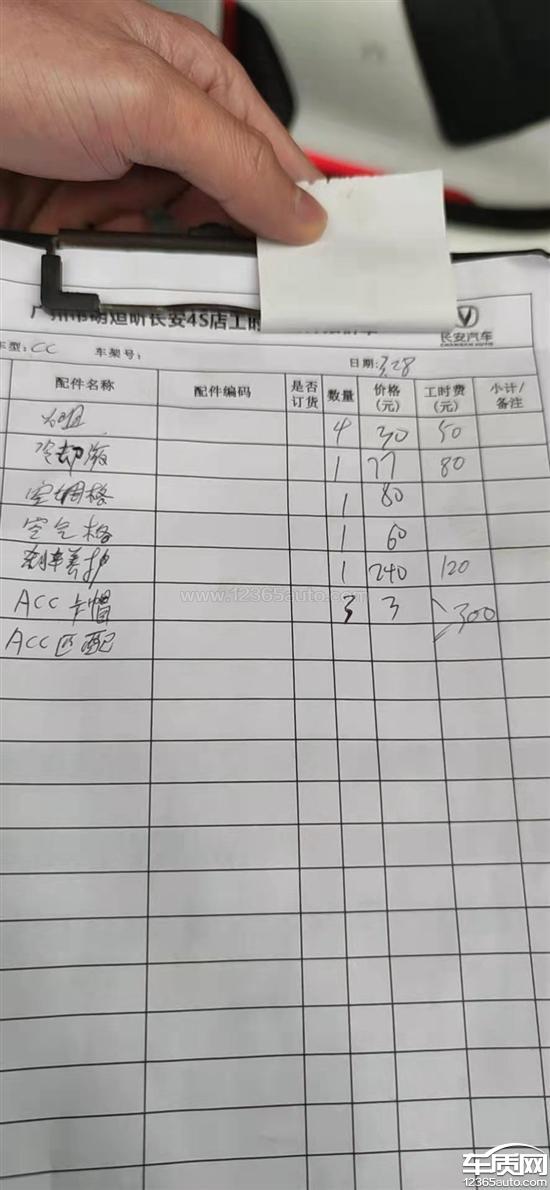 长安4S店工时
长安汽车
CHANGAN AUTO
车型: CC 车架号: 日期: 3.28
配件名称 配件编码 是否订货 数量 价格(元) 工时费(元) 小计/备注
火咀 4 30 50
冷却液 1 77 80
空调格 1 80
空气格 1 60
刹车养护 1 240 120
ACC卡帽 3 3 300
ACC匹配
www.12365auto.com
车质网
12365auto.com